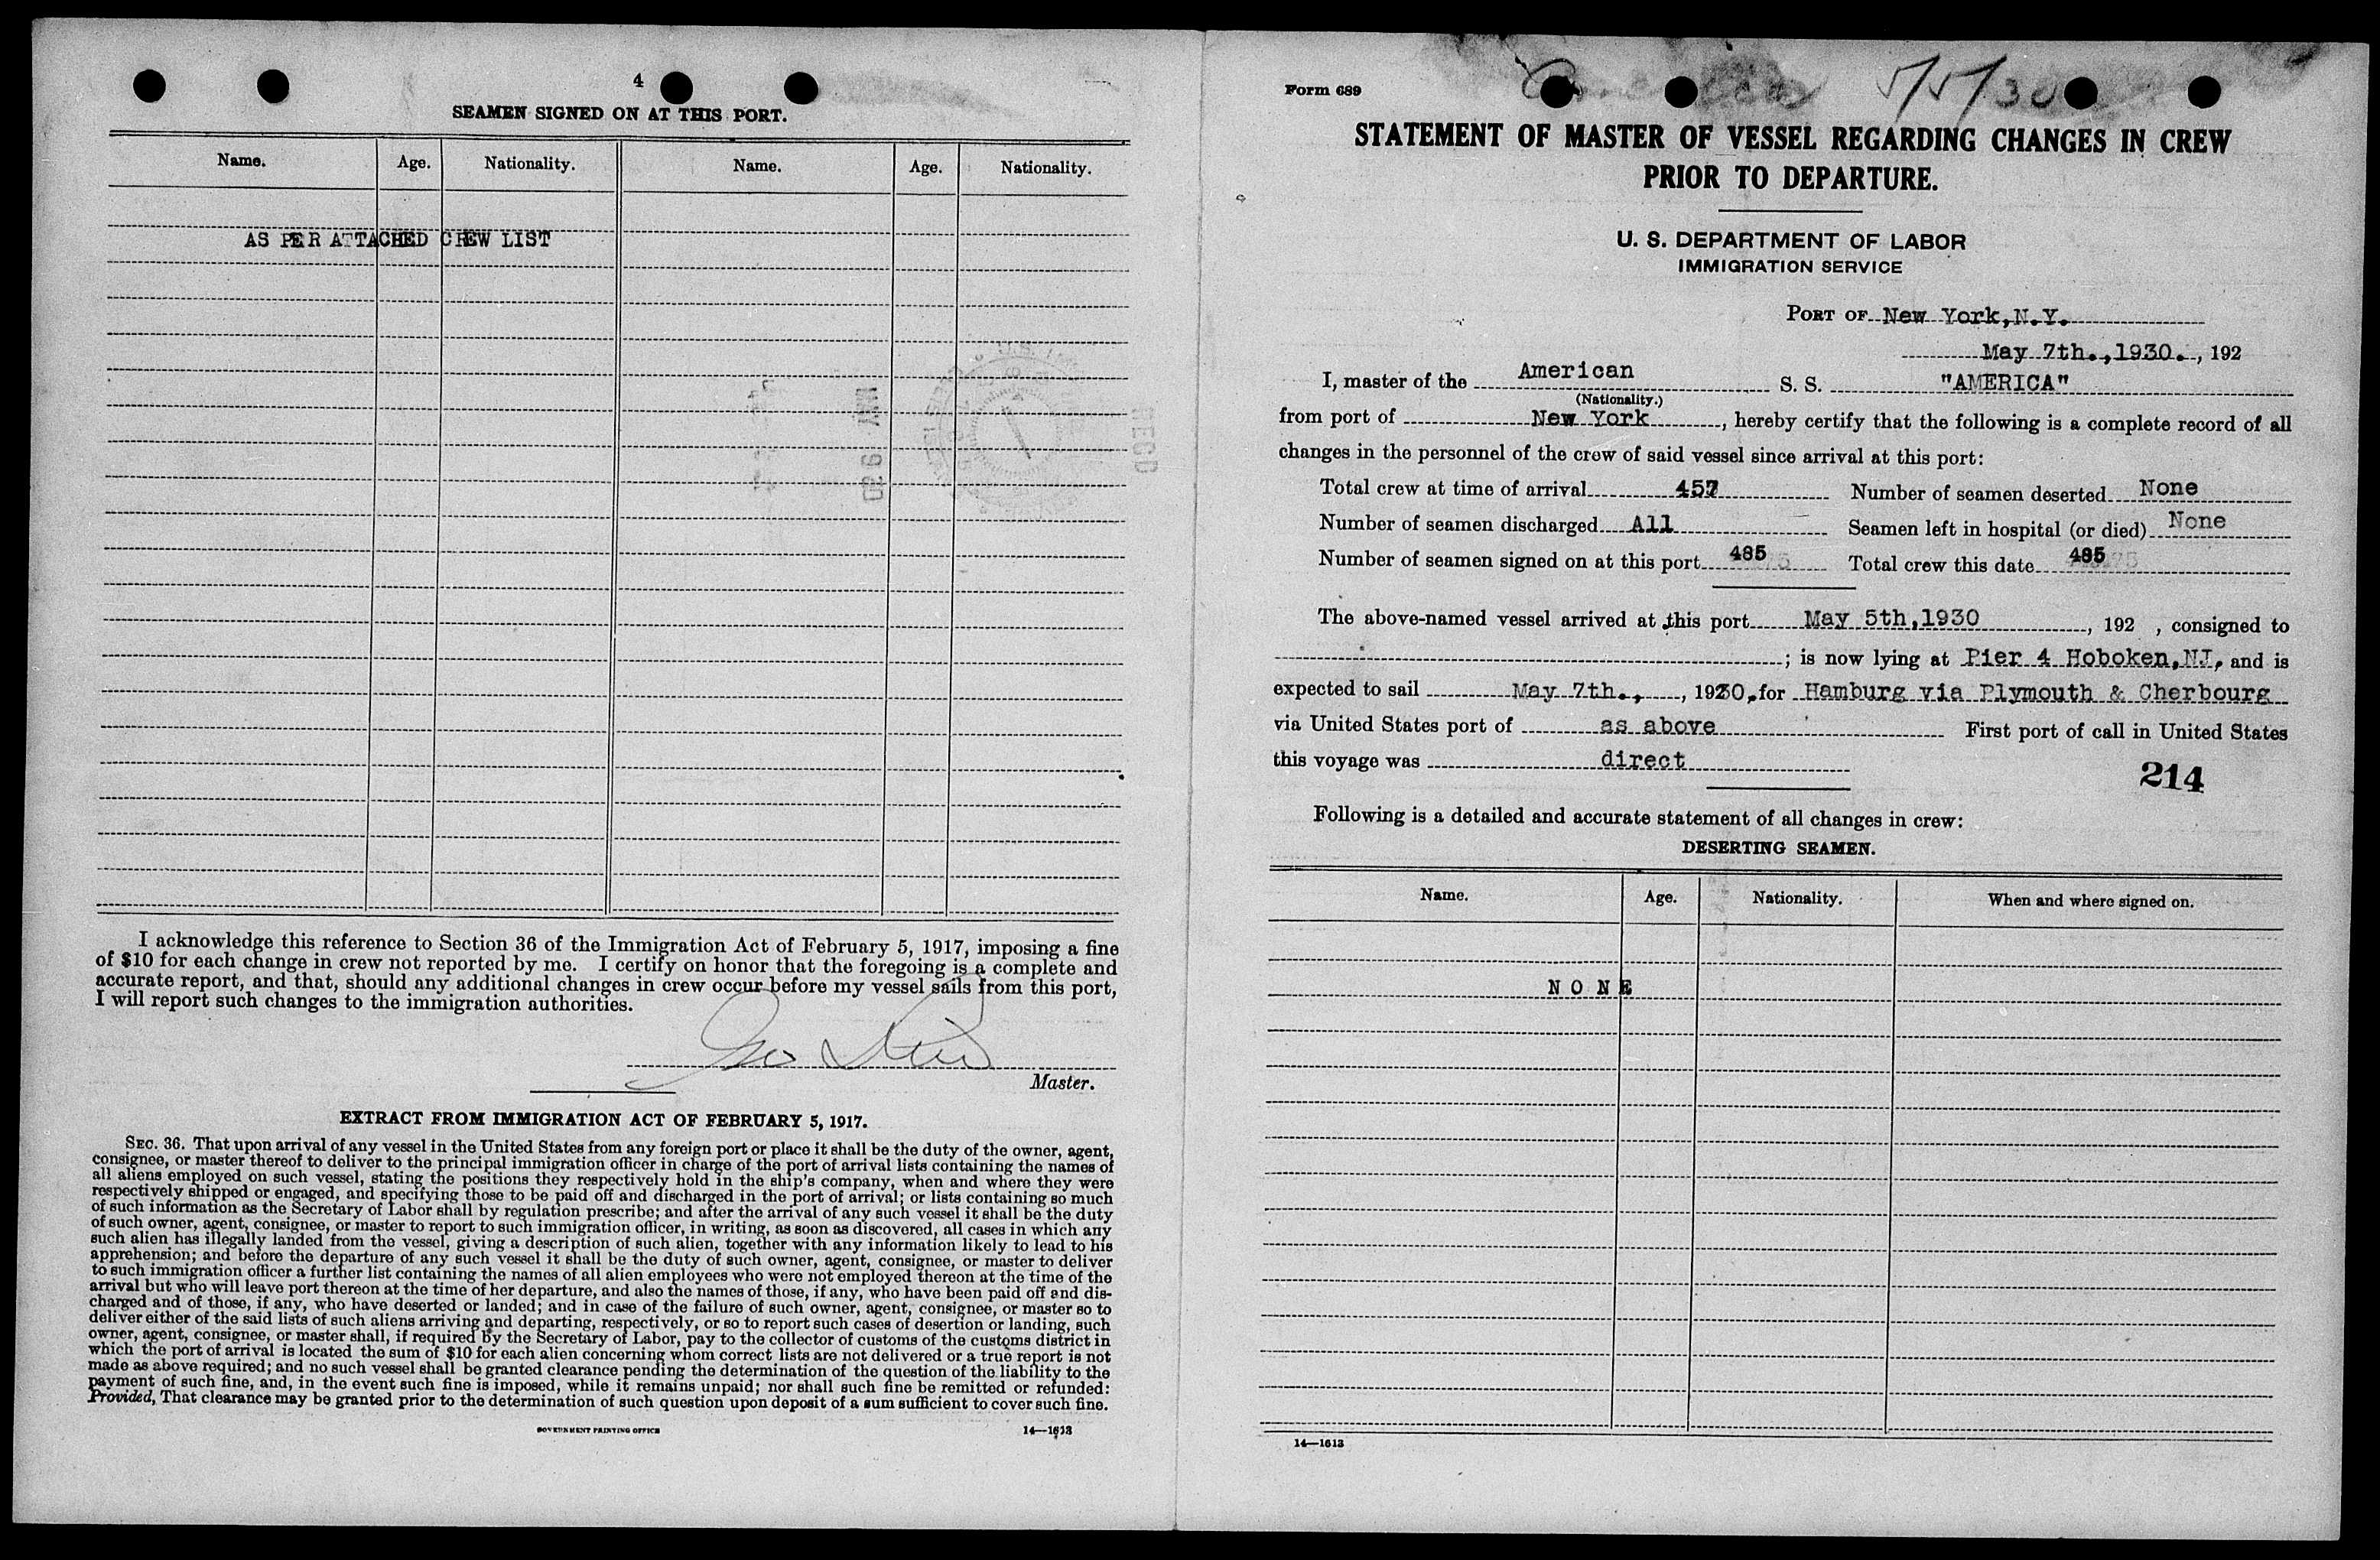 4
SEAMEN SIGNED ON AT THIS PORT.
Name. Age. Nationality. Name. Age. Nationality.
AS PER ATTACHED CREW LIST
I acknowledge this reference to Section 36 of the Immigration Act of February 5, 1917, imposing a fine
of $10 for each change in crew not reported by me. I certify on honor that the foregoing is a complete and
accurate report, and that, should any additional changes in crew occur before my vessel sails from this port,
I will report such changes to the immigration authorities.
Geo
Master.
EXTRACT FROM IMMIGRATION ACT OF FEBRUARY 5, 1917.
SEC. 36. That upon arrival of any vessel in the United States from any foreign port or place it shall be the duty of the owner, agent,
consignee, or master thereof to deliver to the principal immigration officer in charge of the port of arrival lists containing the names of
all aliens employed on such vessel, stating the positions they respectively hold in the ship's company, when and where they were
respectively shipped or engaged, and specifying those to be paid off and discharged in the port of arrival; or lists containing so much
of such information as the Secretary of Labor shall by regulation prescribe; and after the arrival of any such vessel it shall be the duty
of such owner, agent, consignee, or master to report to such immigration officer, in writing, as soon as discovered, all cases in which any
such alien has illegally landed from the vessel, giving a description of such alien, together with any information likely to lead to his
apprehension; and before the departure of any such vessel it shall be the duty of such owner, agent, consignee, or master to deliver
to such immigration officer a further list containing the names of all alien employees who were not employed thereon at the time of the
arrival but who will leave port thereon at the time of her departure, and also the names of those, if any, who have been paid off and dis-
charged and of those, if any, who have deserted or landed; and in case of the failure of such owner, agent, consignee, or master so to
deliver either of the said lists of such aliens arriving and departing, respectively, or so to report such cases of desertion or landing, such
owner, agent, consignee, or master shall, if required by the Secretary of Labor, pay to the collector of customs of the customs district in
which the port of arrival is located the sum of $10 for each alien concerning whom correct lists are not delivered or a true report is not
made as above required; and no such vessel shall be granted clearance pending the determination of the question of the liability to the
payment of such fine, and, in the event such fine is imposed, while it remains unpaid; nor shall such fine be remitted or refunded:
Provided, That clearance may be granted prior to the determination of such question upon deposit of a sum sufficient to cover such fine.
GOVERNMENT PRINTING OFFICE 14—1613
Form 689
5/5/30
STATEMENT OF MASTER OF VESSEL REGARDING CHANGES IN CREW
PRIOR TO DEPARTURE.
U. S. DEPARTMENT OF LABOR
IMMIGRATION SERVICE
PORT OF New York, N.Y.
May 7th., 1930., 192
I, master of the American S. S. "AMERICA"
(Nationality.)
from port of New York, hereby certify that the following is a complete record of all
changes in the personnel of the crew of said vessel since arrival at this port:
Total crew at time of arrival 457 Number of seamen deserted None
Number of seamen discharged All Seamen left in hospital (or died) None
Number of seamen signed on at this port 485 Total crew this date 485
The above-named vessel arrived at this port May 5th, 1930, 192 , consigned to
; is now lying at Pier 4 Hoboken, NJ, and is
expected to sail May 7th., , 1930, for Hamburg via Plymouth & Cherbourg
via United States port of as above First port of call in United States
this voyage was direct
214
Following is a detailed and accurate statement of all changes in crew:
DESERTING SEAMEN.
Name. Age. Nationality. When and where signed on.
NONE
14—1613